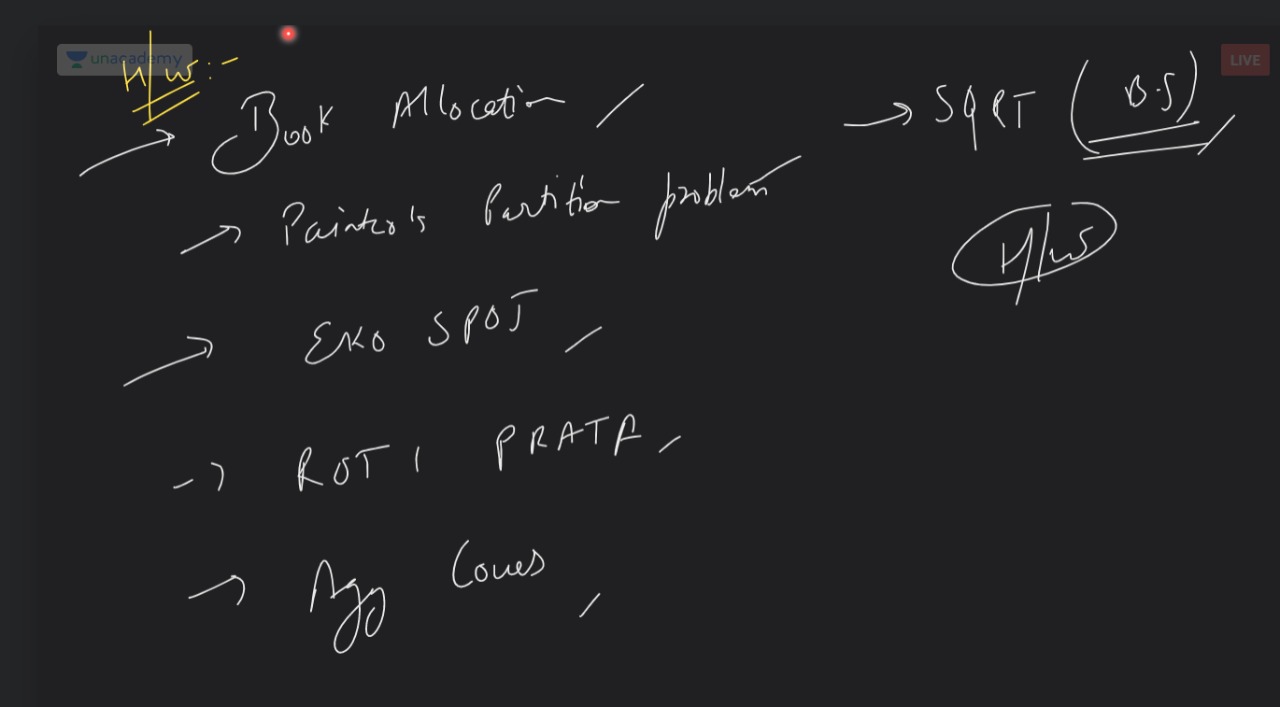 unacademy
LIVE
H/W :-
→ Book Allocation
→ SQRT (B.S)
→ Painter's Partition problem
H/W
→ EKO SPOJ
→ ROTI PRATA
→ Agg Cows